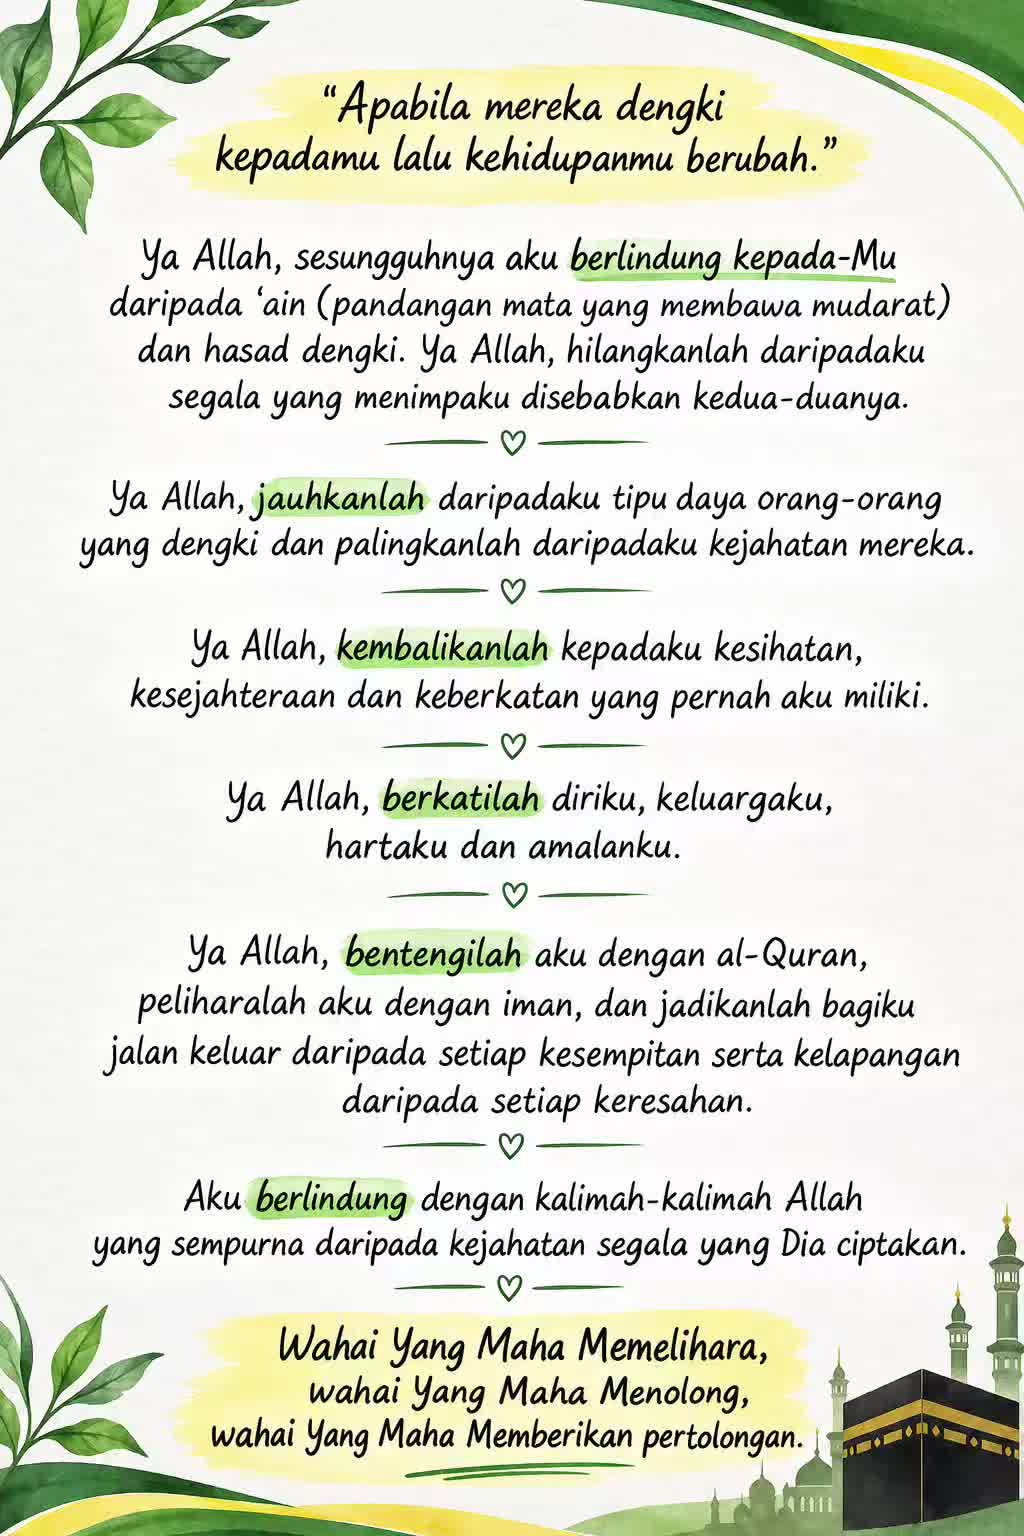 “Apabila mereka dengki
kepadamu lalu kehidupanmu berubah.”
Ya Allah, sesungguhnya aku berlindung kepada-Mu
daripada ‘ain (pandangan mata yang membawa mudarat)
dan hasad dengki. Ya Allah, hilangkanlah daripadaku
segala yang menimpaku disebabkan kedua-duanya.
Ya Allah, jauhkanlah daripadaku tipu daya orang-orang
yang dengki dan palingkanlah daripadaku kejahatan mereka.
Ya Allah, kembalikanlah kepadaku kesihatan,
kesejahteraan dan keberkatan yang pernah aku miliki.
Ya Allah, berkatilah diriku, keluargaku,
hartaku dan amalanku.
Ya Allah, bentengilah aku dengan al-Quran,
peliharalah aku dengan iman, dan jadikanlah bagiku
jalan keluar daripada setiap kesempitan serta kelapangan
daripada setiap keresahan.
Aku berlindung dengan kalimah-kalimah Allah
yang sempurna daripada kejahatan segala yang Dia ciptakan.
Wahai Yang Maha Memelihara,
wahai Yang Maha Menolong,
wahai Yang Maha Memberikan pertolongan.